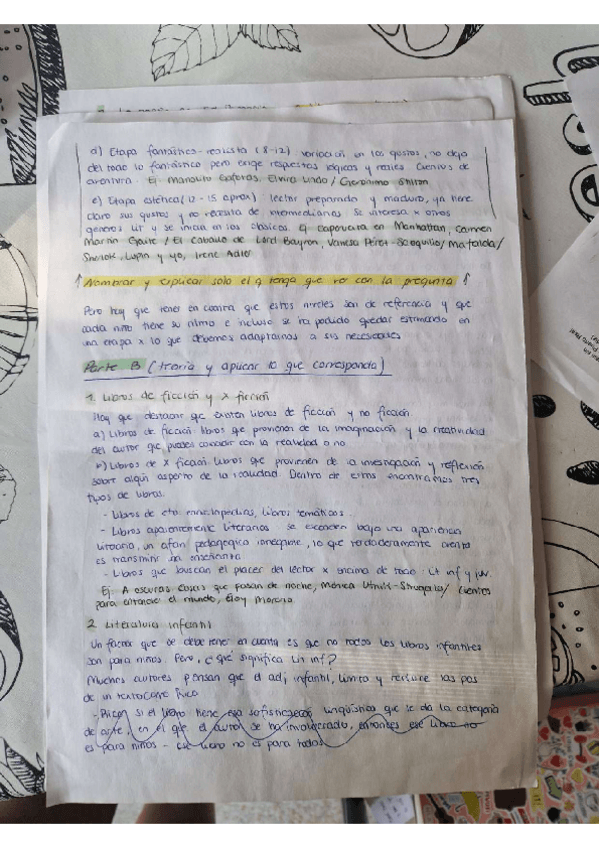 d) Etapa fantástico-realista (8-12) variación en los gustos, no deja
del todo lo fantástico pero exige respuestas lógicas y reales Cuentos de
aventura. Ej Manolito Gafotas, Elvira Lindo / Geronimo Stilton
e) Etapa estética (12-15 aprox) lector preparado y maduro, ya tiene
claro sus gustos y no necesita de intermediarios. Se interesa x otros
generos LIT y se inician en los clásicos. Ej Caperucita en Manhattan, Carmen
Martín Gaite / El Caballo de Lord Bayron, Vanesa Pérez-Sauquillo / Mafalda /
Sherlok, Lupin y yo, Irene Adler
↑ Nombrar y explicar solo el q tenga que ver con la pregunta ↑
Pero hay que tener en cuenta que estos niveles son de referencia y que
cada niño tiene su ritmo e incluso se ha podido quedar estancado en
una etapa x lo que debemos adaptarnos a sus necesidades
Parte B (teoría y aplicar lo que corresponda)
1. Libros de ficción y x ficción
Hay que destacar que existen libros de ficción y no ficción.
a) Libros de ficción: libros que provienen de la imaginación y la creatividad
del autor que puedes conocer con la realidad o no
b) Libros de x ficción: Libros que provienen de la investigación y reflexión
sobre algún aspecto de la realidad. Dentro de estos encontramos tres
tipos de libros.
- Libros de cto: enciclopedias, libros temáticos.
- Libros aparentemente literarios: se esconden bajo una apariencia
literaria, un afán pedagógico, lo que verdaderamente
es transmitir una enseñanza
- Libros que buscan el placer del lector x encima de todo: Lit inf y juv.
Ej: A oscuras cosas que pasan de noche, Mónica / Cuentos
para entender el mundo, Eloy Moreno
2 Literatura infantil
Un factor que se debe tener en cuenta es que no todos los libros infantiles
son para niños. Pero, ¿Qué significa Lit inf?
Muchos autores piensan que el adj infantil, limita y reduce las pos
de un texto
- Si el libro tiene esa sofisticación lingüística que le da la categoría
de arte, en el que el autor se ha involucrado, entonces ese libro no
es para niños - ese libro no es para todos